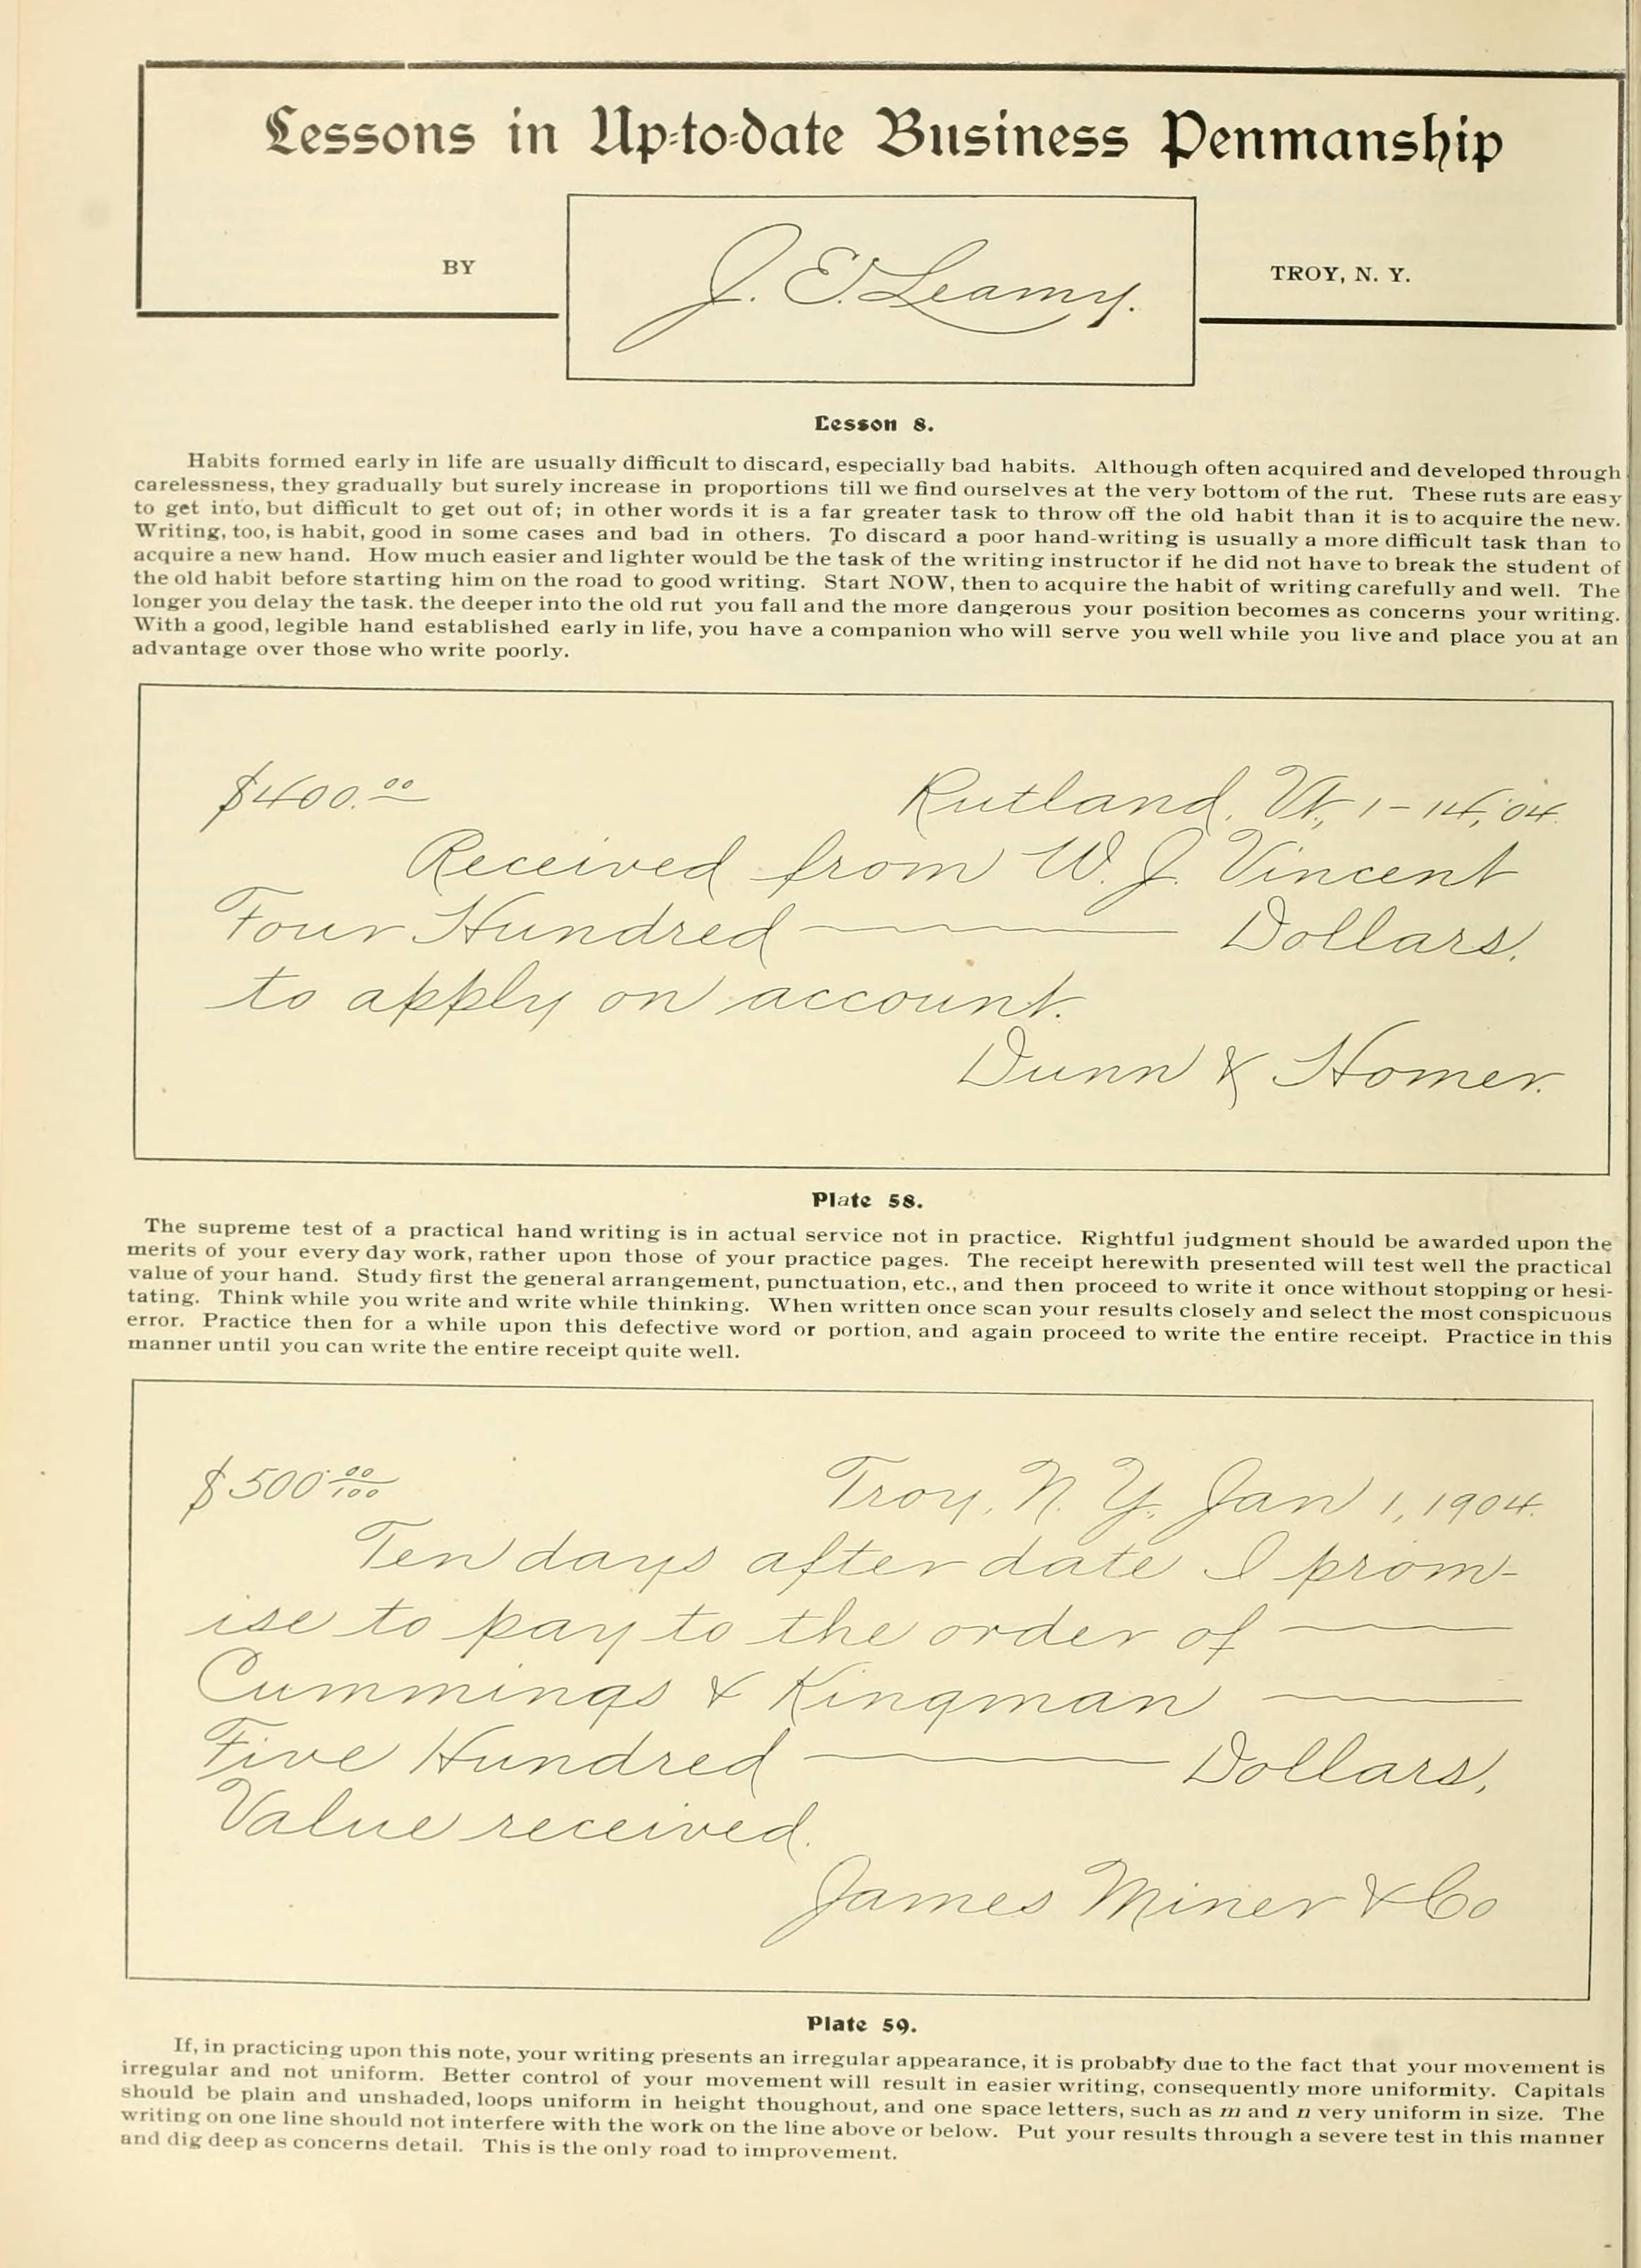 Lessons in Up-to-date Business Penmanship
BY
J. E. Leamy.
TROY, N. Y.
Lesson 8.
Habits formed early in life are usually difficult to discard, especially bad habits. Although often acquired and developed through
carelessness, they gradually but surely increase in proportions till we find ourselves at the very bottom of the rut. These ruts are easy
to get into, but difficult to get out of; in other words it is a far greater task to throw off the old habit than it is to acquire the new.
Writing, too, is habit, good in some cases and bad in others. To discard a poor hand-writing is usually a more difficult task than to
acquire a new hand. How much easier and lighter would be the task of the writing instructor if he did not have to break the student of
the old habit before starting him on the road to good writing. Start NOW, then to acquire the habit of writing carefully and well. The
longer you delay the task. the deeper into the old rut you fall and the more dangerous your position becomes as concerns your writing.
With a good, legible hand established early in life, you have a companion who will serve you well while you live and place you at an
advantage over those who write poorly.
$400.00 Rutland, Vt., 1-14,'04.
Received from W. J. Vincent
Four Hundred —— Dollars,
to apply on account.
Dunn & Homer.
Plate 58.
The supreme test of a practical hand writing is in actual service not in practice. Rightful judgment should be awarded upon the
merits of your every day work, rather upon those of your practice pages. The receipt herewith presented will test well the practical
value of your hand. Study first the general arrangement, punctuation, etc., and then proceed to write it once without stopping or hesi-
tating. Think while you write and write while thinking. When written once scan your results closely and select the most conspicuous
error. Practice then for a while upon this defective word or portion, and again proceed to write the entire receipt. Practice in this
manner until you can write the entire receipt quite well.
$500 00/100 Troy, N. Y. Jan 1, 1904.
Ten days after date I prom-
ise to pay to the order of ——
Cummings & Kingman ——
Five Hundred —— Dollars,
Value received.
James Miner & Co
Plate 59.
If, in practicing upon this note, your writing presents an irregular appearance, it is probably due to the fact that your movement is
irregular and not uniform. Better control of your movement will result in easier writing, consequently more uniformity. Capitals
should be plain and unshaded, loops uniform in height thoughout, and one space letters, such as m and n very uniform in size. The
writing on one line should not interfere with the work on the line above or below. Put your results through a severe test in this manner
and dig deep as concerns detail. This is the only road to improvement.